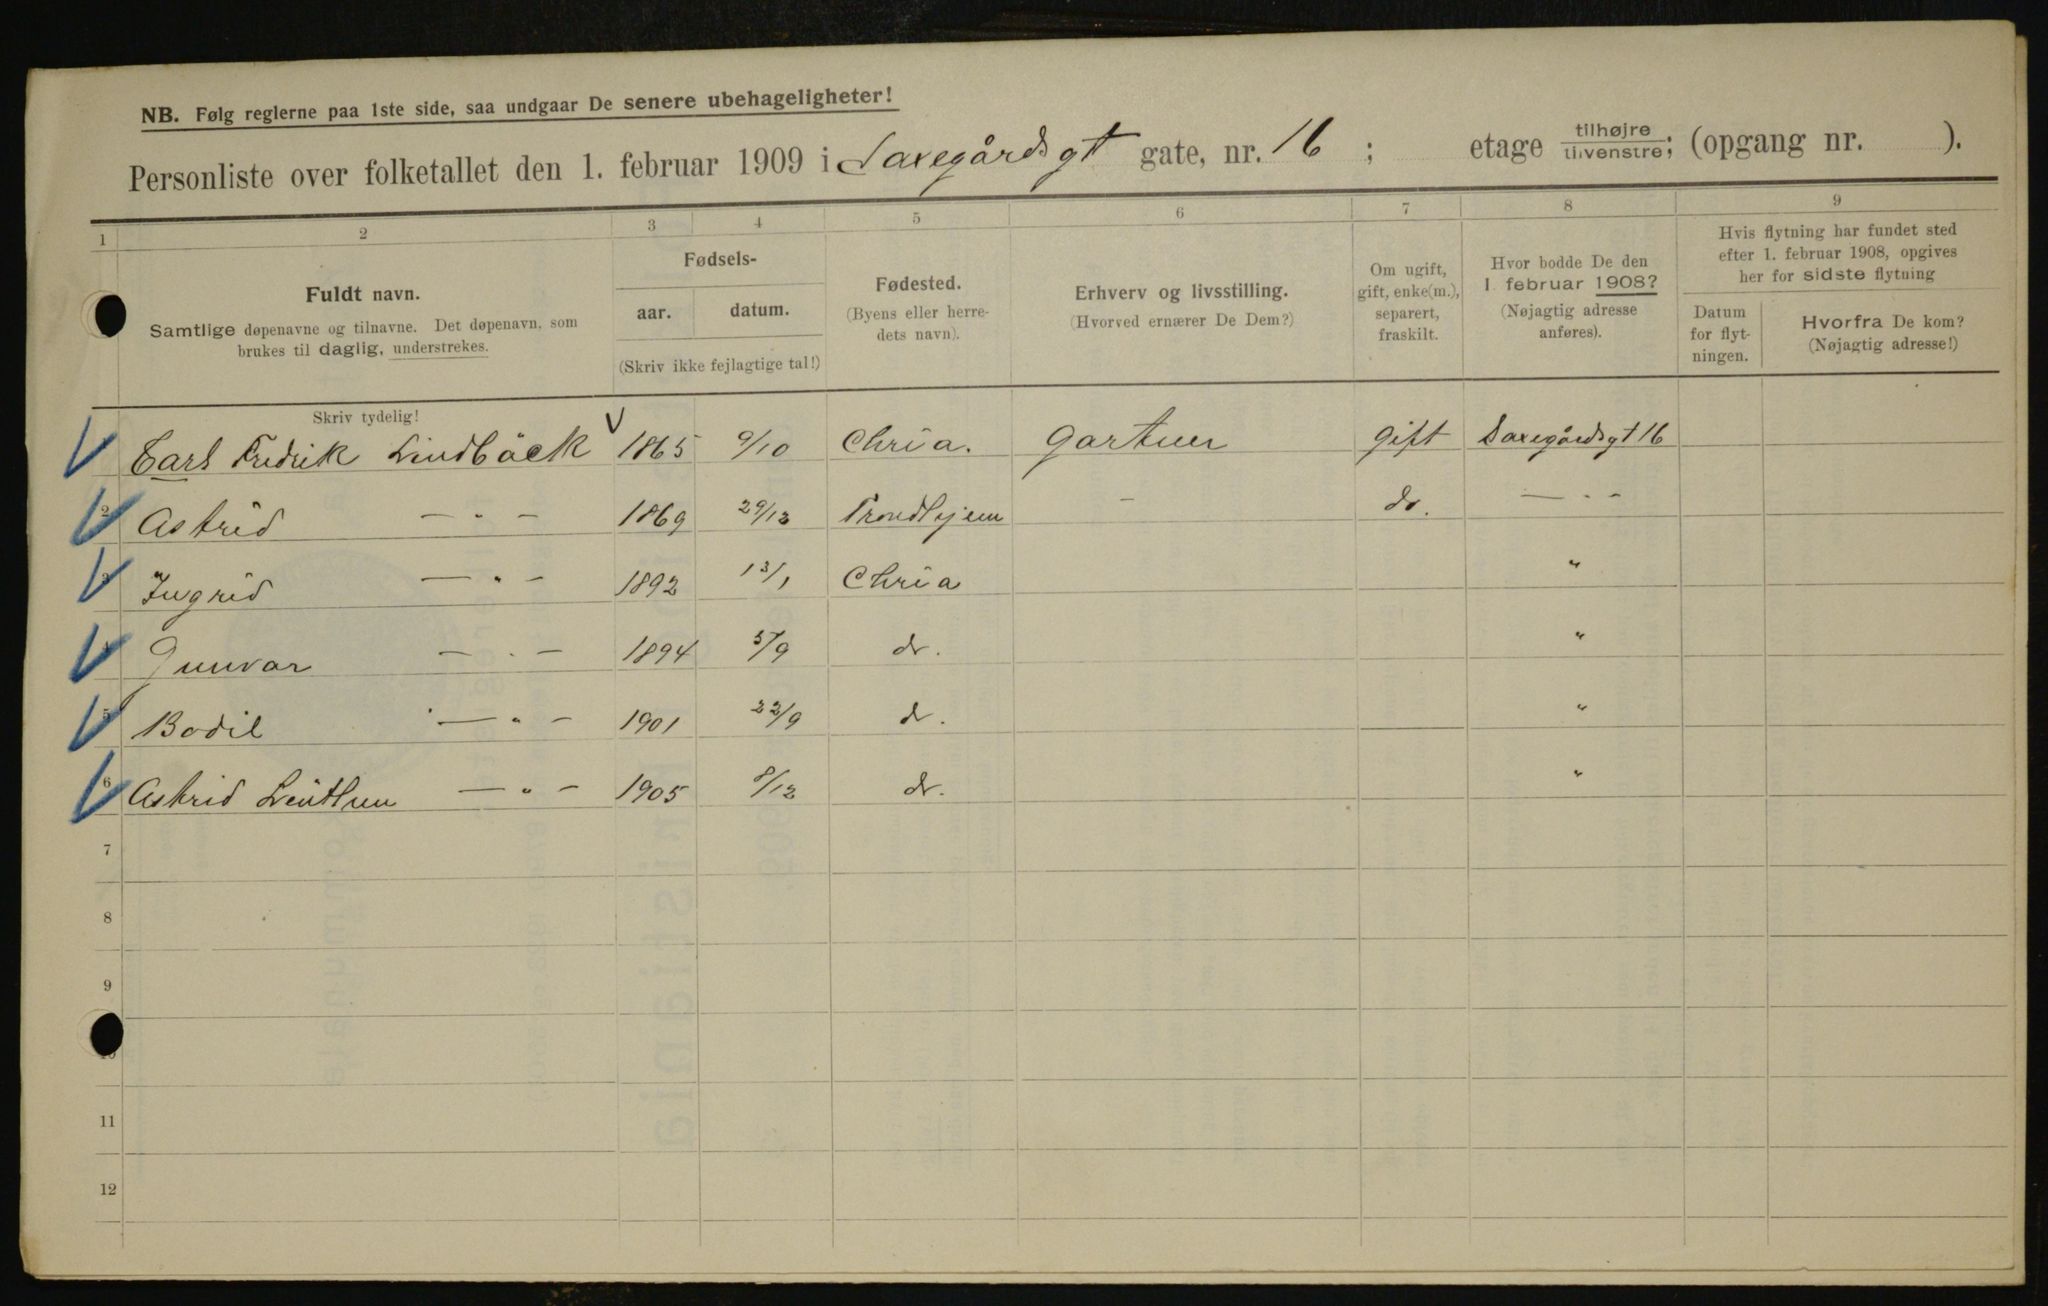 NB. Følg reglerne paa 1ste side, saa undgaar De senere ubehageligheter!
Personliste over folketallet den 1. februar 1909 i Saxegårdsgt gate, nr. 16 ; etage tilhøjre tilvenstre; (opgang nr. ).
1 2 3 4 5 6 7 8 9
Fuldt navn.
Samtlige døpenavne og tilnavne. Det døpenavn, som
brukes til daglig, understrekes.
Fødsels-
aar. datum.
(Skriv ikke fejlagtige tal!)
Fødested.
(Byens eller herre-
dets navn).
Erhverv og livsstilling.
(Hvorved ernærer De Dem?)
Om ugift,
gift, enke(m.),
separert,
fraskilt.
Hvor bodde De den
1. februar 1908?
(Nøjagtig adresse
anføres).
Hvis flytning har fundet sted
efter 1. februar 1908, opgives
her for sidste flytning
Datum
for flyt-
ningen.
Hvorfra De kom?
(Nøjagtig adresse!)
Skriv tydelig!
Carl Fredrik Lindbäck 1865 9/10 Chria. Gartner gift Saxegårdsgt 16
2 Astrid — " — 1869 29/12 Trondhjem - do. — " —
3 Ingrid — " — 1892 13/1 Chria "
4 Gunvor — " — 1894 5/9 do. "
5 Bodil — " — 1901 22/9 do. "
6 Astrid — " — 1905 8/12 do. "
7
8
9
10
11
12